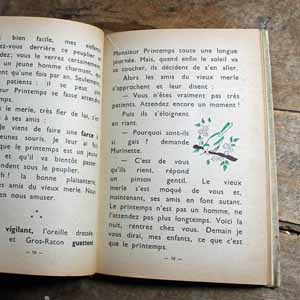 en bien facile, mes enfants
vez-vous derrière ce peuplier.
idez; vous le verrez certainement.
un jeune homme charmant, et
vient qu'une fois par an. Seulement
patients : il se peut
ieur Printemps se fasse attendre
temps.
le merle, très fier de lui, s'en
à ses amis :
Je viens de faire une farce à
eunes souris. Je leur ai dit que
le printemps est un jeune homme
et qu'il va bientôt passer
sous le peuplier.
h ! la bonne plaisanterie,
es amis du vieux merle. Nous
en nous amuser.
vigilant, l'oreille dressée,
et Gros-Raton guettent
Monsieur Printemps toute une longue
journée. Mais, quand enfin le soleil va
se coucher, ils décident de s'en aller.
Alors les amis du vieux merle
s'approchent et leur disent :
— Vous n'êtes vraiment pas très
patients. Attendez encore un moment !
Puis ils s'éloignent
en riant.
— Pourquoi sont-ils
si gais ? demande
Murinette.
— C'est de vous
qu'ils rient, répond
un pinson gentil. Le vieux
merle s'est moqué de vous et,
maintenant, ses amis en font autant.
Le printemps n'est pas un homme, ne
l'attendez pas plus longtemps. Voici la
nuit, rentrez chez vous. Demain je
vous dirai, mes enfants, ce que c'est
que le printemps.